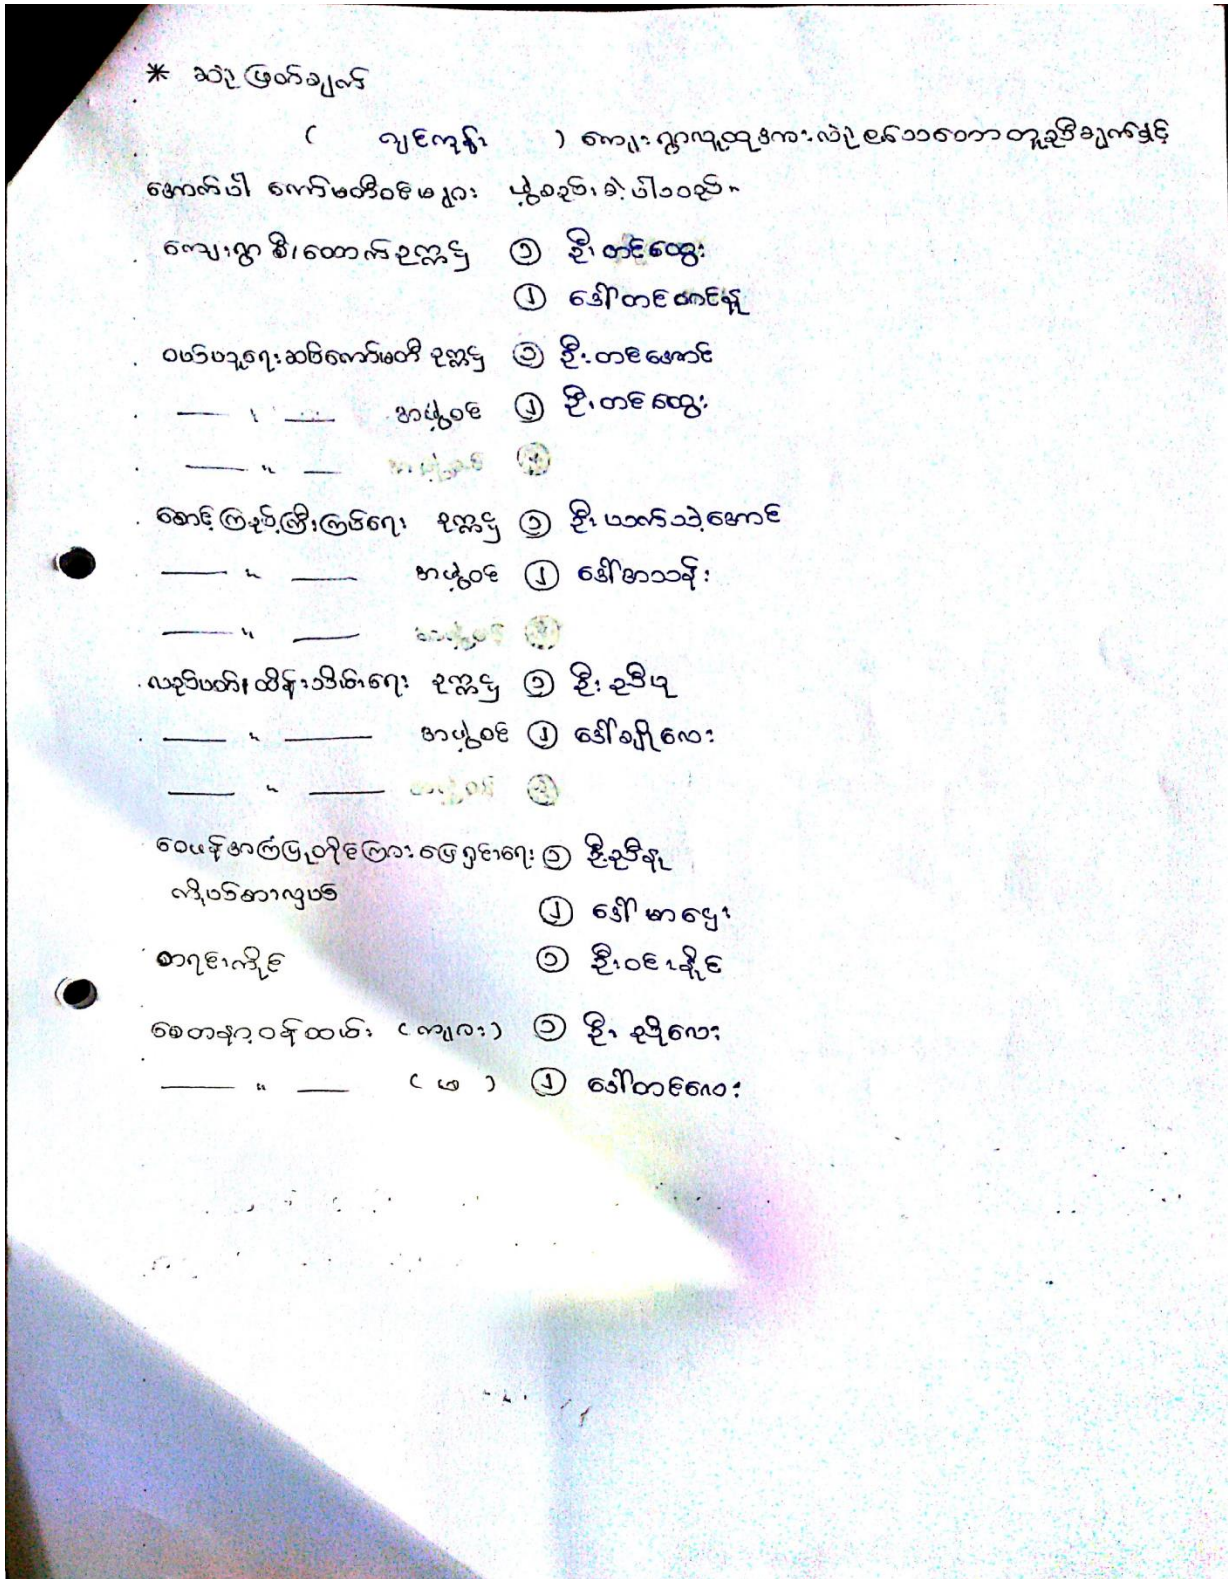 * ဆုံးဖြတ်ချက်
( ချင်ကုန်း ) ကျေးရွာလူထုအားလုံး၏သဘောတူညီချက်နှင့်
အောက်ပါ ကော်မတီဝင်များ ဖွဲ့စည်းခဲ့ပါသည်။
ကျေးရွာ စီးထောက်ဥက္ကဋ္ဌ ၁ ဦးတင်ထွေး
၂ ဒေါ်တင်အောင်နု
ဝယ်ယူရေးဆပ်ကော်မတီ ဥက္ကဋ္ဌ ၁ ဦးတင်အောင်
— " — အဖွဲ့ဝင် ၂ ဦးတင်ထွေး
— " — အဖွဲ့ဝင်
စောင့်ကြည့်ကြီးကြပ်ရေး ဥက္ကဋ္ဌ ၁ ဦးယာက်သဲ့အောင်
— " — အဖွဲ့ဝင် ၂ ဒေါ်အေသန်း
— " — အဖွဲ့ဝင်
လည်ပတ်/ထိန်းသိမ်းရေး ဥက္ကဋ္ဌ ၁ ဦးညီပု
— " — အဖွဲ့ဝင် ၂ ဒေါ်ချိုလေး
— " — အဖွဲ့ဝင်
ဝေဖန်အကြံပြုတိုင်ကြားဖြေရှင်းရေး ၁ ဦးညီနု
ကိုယ်စားလှယ် ၂ ဒေါ်မာဌေး
စာရင်းကိုင် ၁ ဦးဝင်းနိုင်
စေတနာ့ဝန်ထမ်း (ကျား) ၁ ဦးညိုလေး
— " — ( မ ) ၂ ဒေါ်တင်လေး